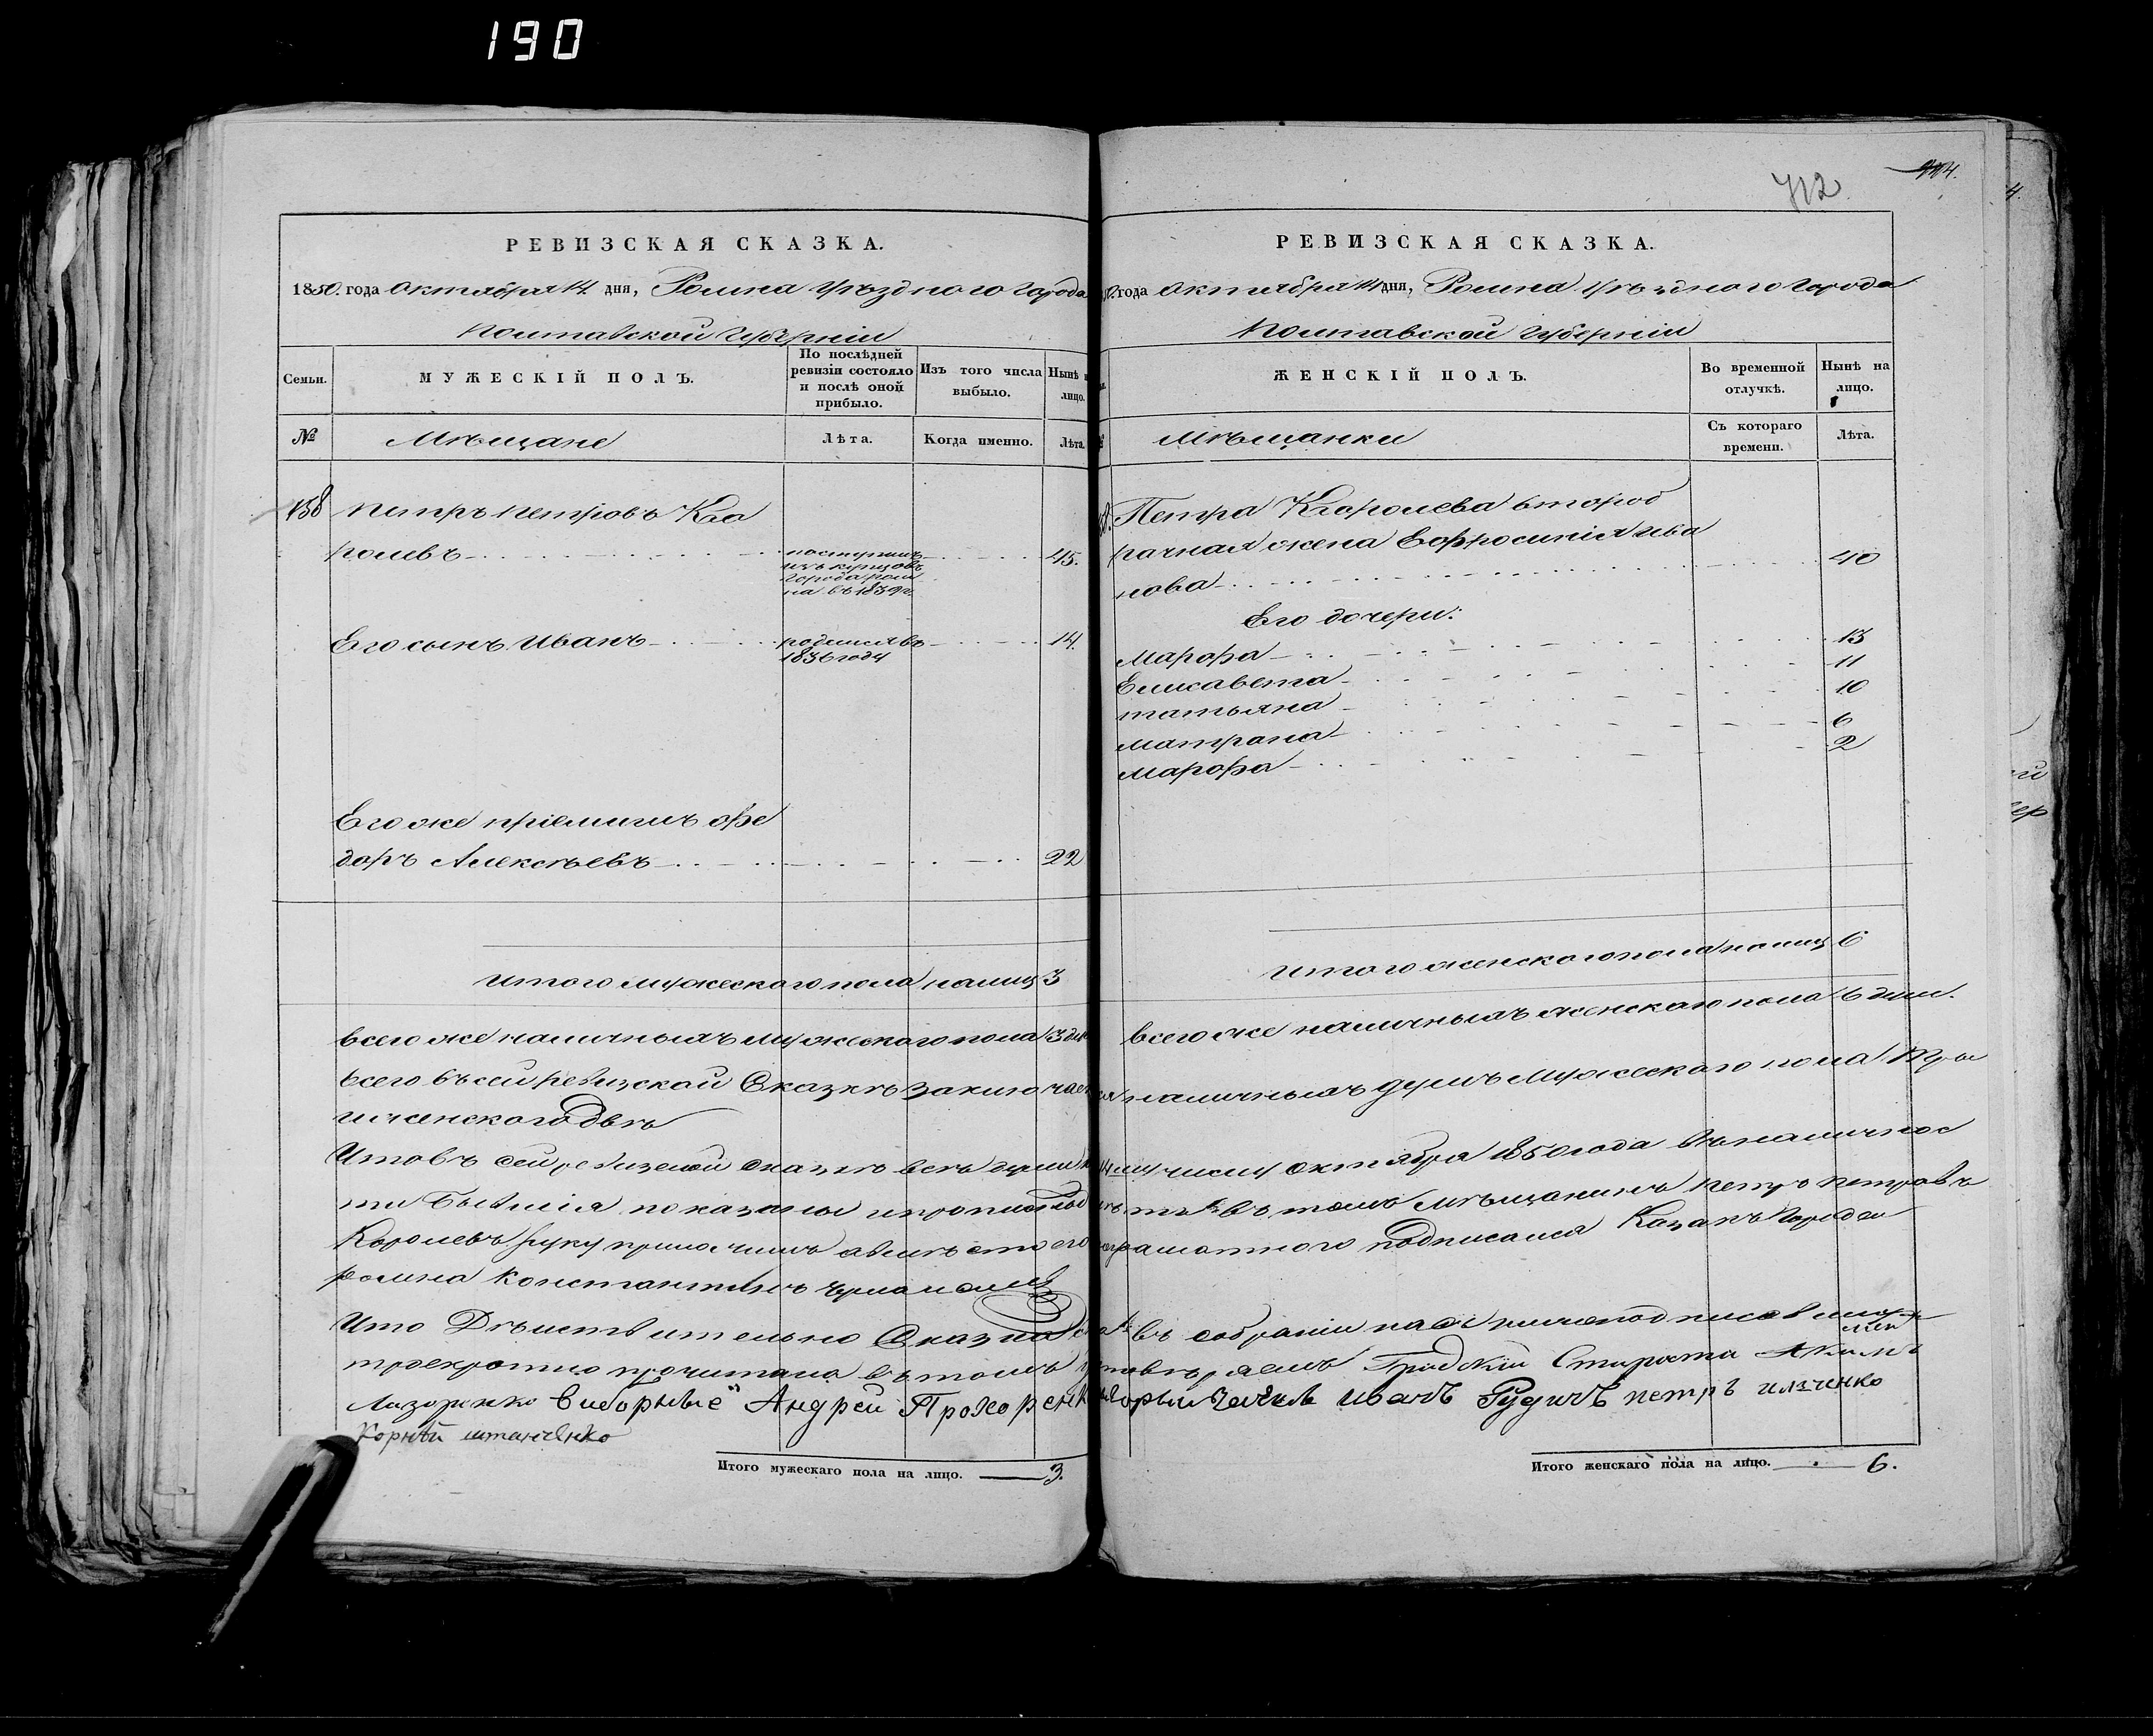 190
РЕВИЗСКАЯ СКАЗКА.
1850. года Октября 14. дня, Ромна Уѣзднаго Города
Полтавской Губерніи
Семьи.
МУЖЕСКІЙ ПОЛЪ.
По послѣдней ревизіи состояло и послѣ оной прибыло.
Изъ того числа выбыло.
Нынѣ
лицо.
№
Мѣщане
Лѣта.
Когда именно.
Лѣта.
158 Петръ Петровъ Ко
ролевъ 45.
поступилъ
изъ купцовъ
города Ром
на въ 1839 г.
Его сынъ Иванъ родился въ 14.
1836 году
Его же пріемышъ Фе
доръ Алексѣевъ 22
Итого мужескаго пола налицо 3
всего же наличныхъ мужескаго пола 3
всего въ сей ревизской Сказкѣ заключает
и женскаго
Что въ сей ревизской сказкѣ всѣ души
ти бывшія показаны
Королевъ руку приложилъ а вмѣсто его
Ромна Константинъ
Что Дѣйствительно Сказка
троекратно прочитана въ томъ
Лазоренко Виборные Андрей Прохоренк
Корнѣй
Итого мужескаго пола на лицо. 3.
712
РЕВИЗСКАЯ СКАЗКА.
года Октября 14 дня, Ромна Уѣзднаго Города
Полтавской Губерніи
ЖЕНСКІЙ ПОЛЪ.
Во временной отлучкѣ.
Нынѣ на лицо.
Мѣщанки
Съ котораго времени.
Лѣта.
Петра Королева второб
рачная жена Евфросинія Ива
нова 40
Его дочери:
Марфа 13
Елисавета 11
татьяна 10
Матрана 6
Марфа 2
Итого женскаго пола налицо 6
всего же наличныхъ женскаго пола 6 душ.
наличныхъ душъ Мужескаго пола Три
числу Октября 1850 года въ наличнос
въ томъ Мѣщанинъ Петръ Петровъ
подписался Козакъ Города
въ собраніи насъ
Градскій Староста
Иванъ Рудичъ Петръ илченко
Итого женскаго пола на лицо. 6.